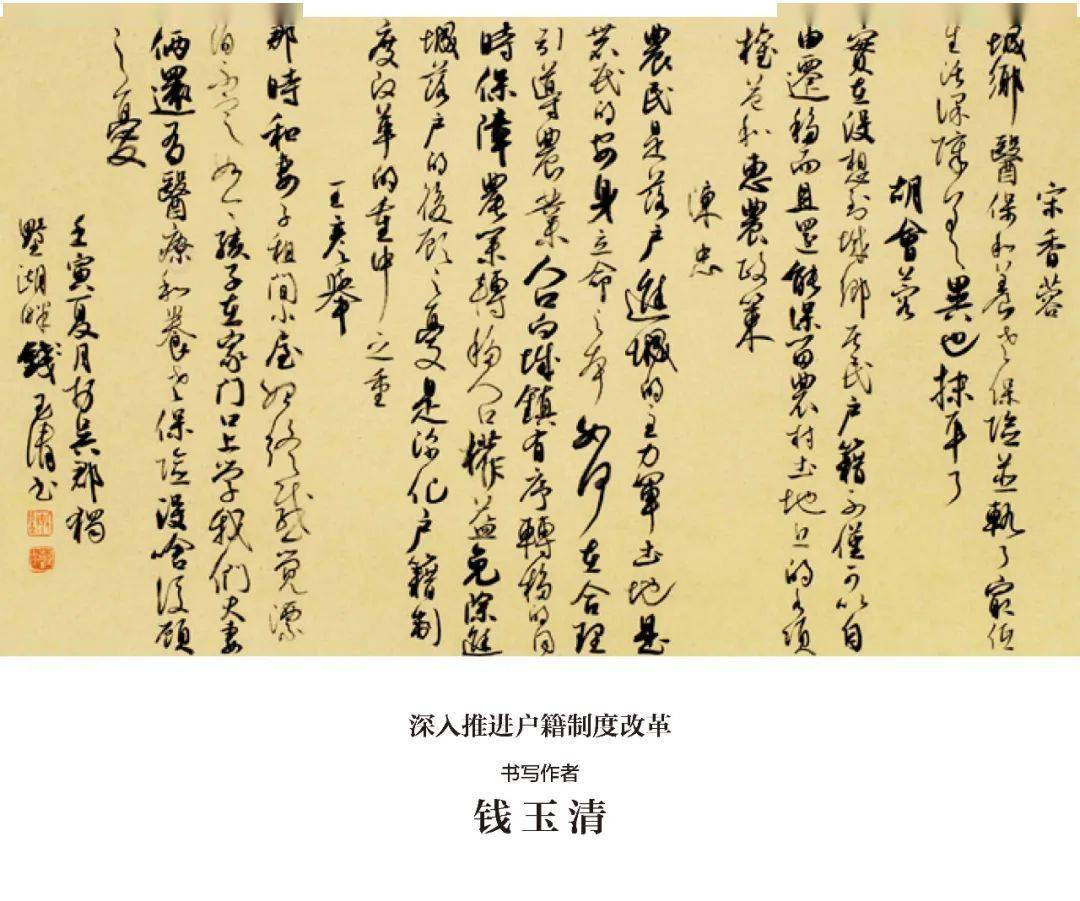 宋香蓉
城鄉醫保和養老保險並軌了最低
生活保障差異也抹平了
胡會
實在沒想到城鄉居民户籍不僅可以自
由遷移而且還能保留農村土地上的各項
權益和惠農政策
陳忠
農民是落户進城的主力軍土地是
農民的安身立命之本如何在合理
引導農業人口向城鎮有序轉移的同
時保障農業轉移人口權益免除進
城落户的後顧之憂是深化户籍制
度改革的重中之重
王彥舉
那時和妻子租間小屋始終感覺漂
泊不定如今孩子在家门口上学我們夫妻
倆還有醫療和養老保險沒啥後顧
之憂
壬寅夏月於吳郡獨
墅湖畔錢玉清書
深入推进户籍制度改革
书写作者
钱玉清